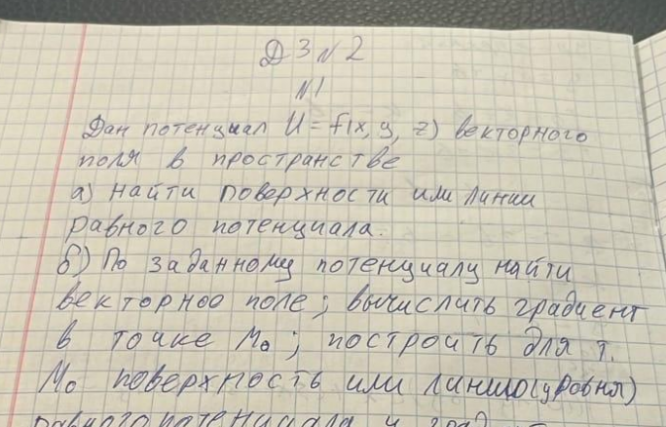 ДЗ №2
№1
Дан потенциал U = f(x, y, z) векторного
поля в пространстве
а) найти поверхности или линии
равного потенциала.
б) По заданному потенциалу найти
векторное поле; вычислить градиент
в точке M₀; построить для т.
M₀ поверхность или линию(уровня)
равного потенциала и град